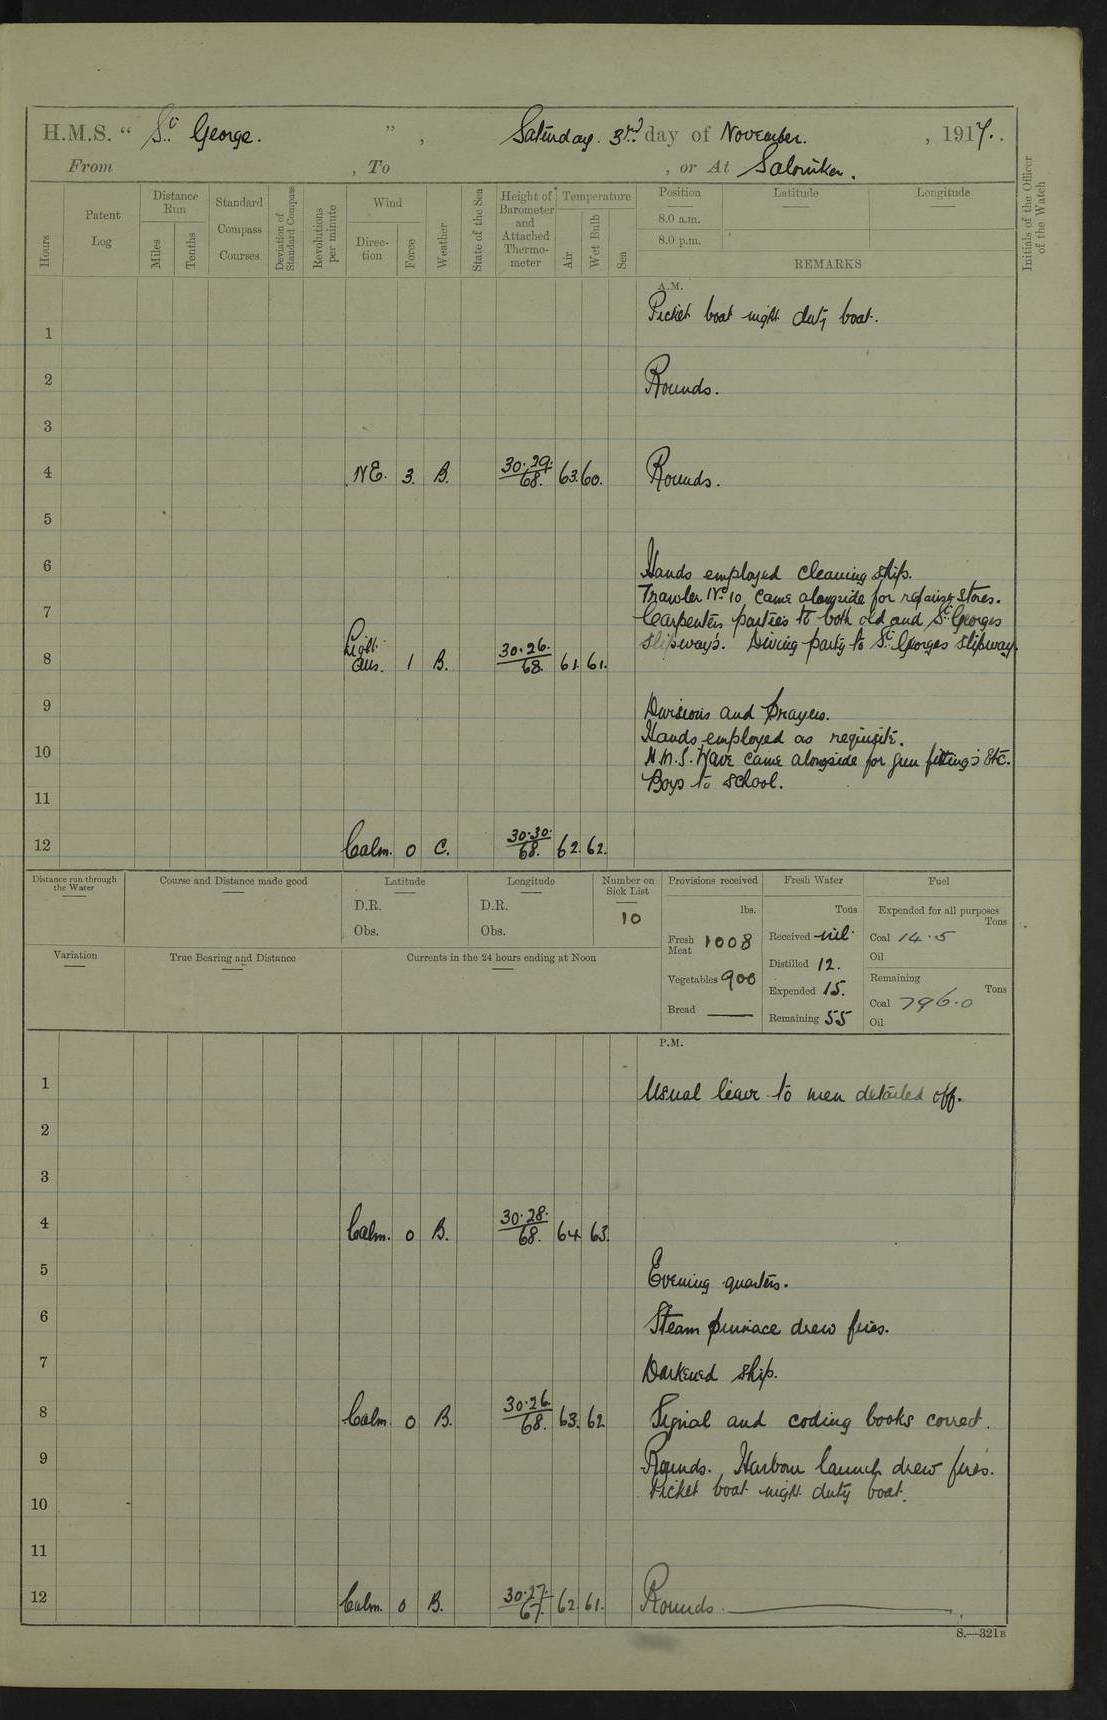 H.M.S. " St George. ", Saturday. 3rd day of November. , 1917.
From , To , or At Salonika.
Hours
Patent Log
Distance Run
Miles
Tenths
Standard Compass Courses
Deviation of Standard Compass
Revolutions per minute
Wind
Direc-tion
Force
Weather
State of the Sea
Height of Barometer and Attached Thermo-meter
Temperature
Air
Wet Bulb
Sea
Position Latitude Longitude
8.0 a.m.
8.0 p.m.
REMARKS
Initials of the Officer of the Watch
A.M.
Picket boat night duty boat.
1
2 Rounds.
3
4 NE. 3. B. 30.29. 68. 63. 60. Rounds.
5
6 Hands employed cleaning ship.
Trawler No 10 came alongside for refairing stores.
7 Carpenters parties to both old and St Georges
slipways. Diving party to St Georges slipway.
8 Light airs. 1 B. 30.26. 68. 61. 61.
9 Divisions and prayers.
Hands employed as requisite.
10 H.M.S. Wave came alongside for gun fittings etc.
Boys to school.
11
12 Calm. 0 C. 30.30. 68. 62. 62.
Distance run through the Water
Course and Distance made good
Latitude
D.R.
Obs.
Longitude
D.R.
Obs.
Number on Sick List
10
Provisions received
lbs.
Fresh Meat 1008
Vegetables 900
Bread ——
Fresh Water
Tons
Received nil.
Distilled 12.
Expended 15.
Remaining 55
Fuel
Expended for all purposes
Tons
Coal 14.5
Oil
Remaining
Tons
Coal 796.0
Oil
Variation
True Bearing and Distance
Currents in the 24 hours ending at Noon
P.M.
1 Usual leave to men detailed off.
2
3
4 Calm. 0 B. 30.28. 68. 64 63.
5 Evening quarters.
6 Steam pinnace drew fires.
7 Darkened ship.
8 Calm. 0 B. 30.26. 68. 63. 62 Signal and coding books correct.
9 Rounds. Harbour launch drew fires.
Picket boat night duty boat.
10
11
12 Calm. 0 B. 30.27. 67. 62. 61. Rounds.
S.—321B